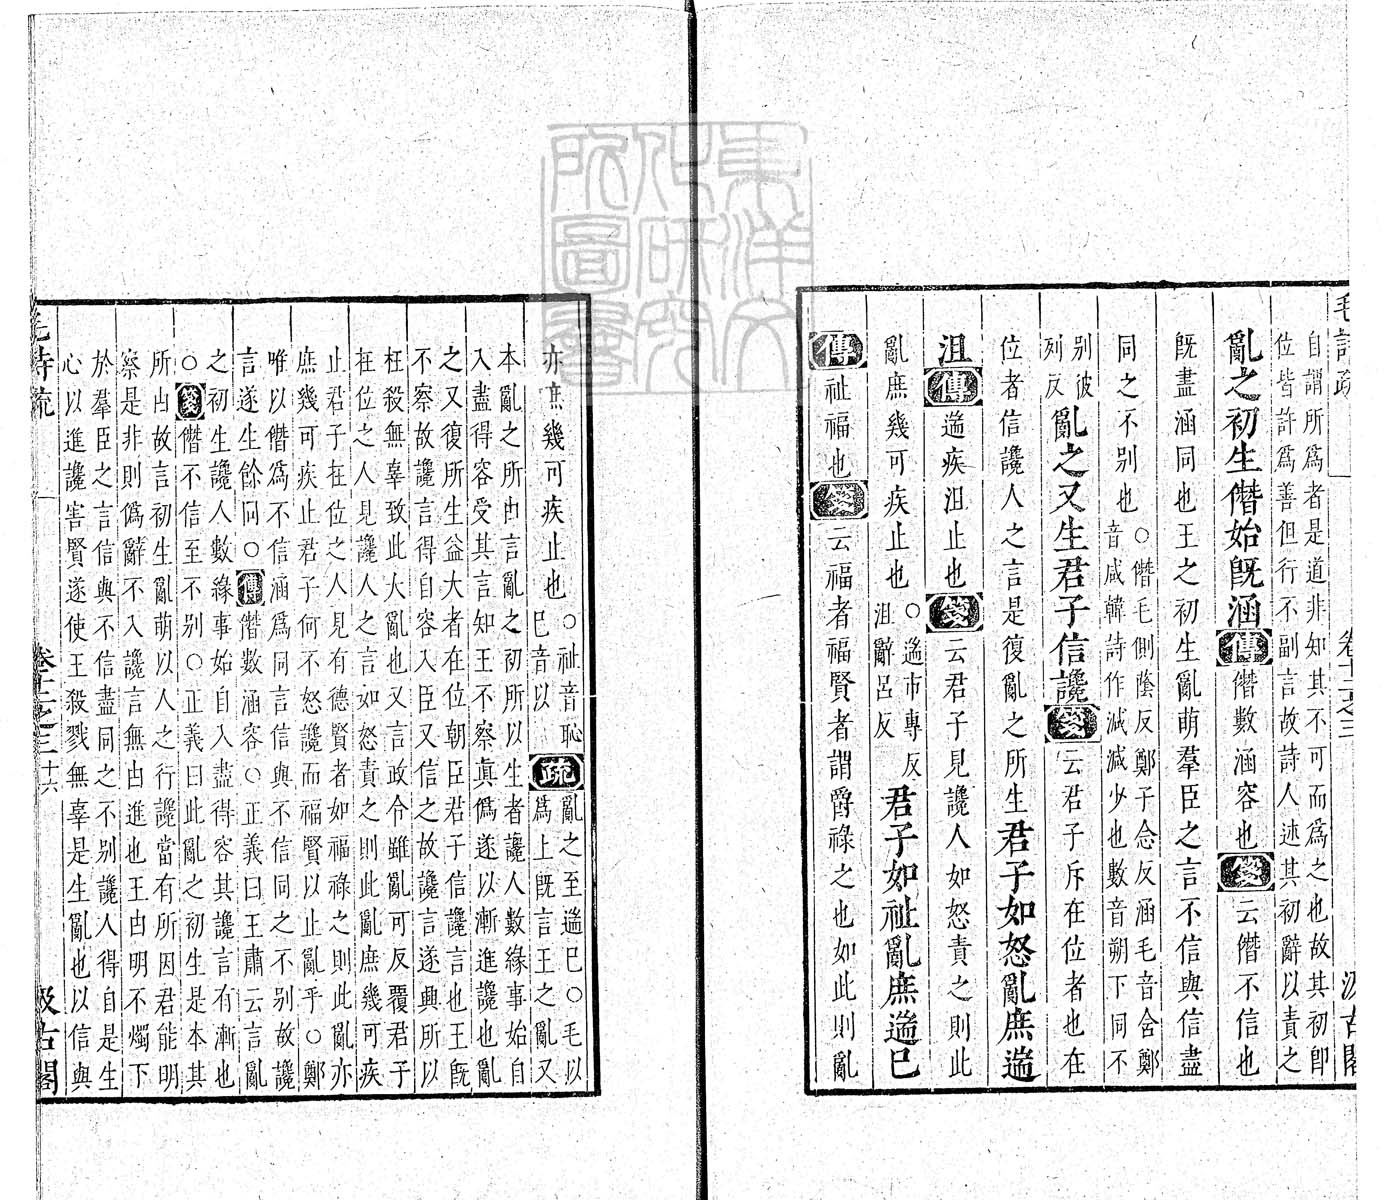 毛詩疏
卷十二之三
汲古閣
自謂所爲者是道非知其不可而爲之也故其初卽
位皆許爲善但行不副言故詩人述其初辭以責之
亂之初生僭始旣涵傳僭數涵容也箋云僭不信也
旣盡涵同也王之初生亂萌羣臣之言不信與信盡
同之不别也○僭毛側蔭反鄭子念反涵毛音含鄭
音咸韓詩作減減少也數音朔下同不
别彼
列反
亂之又生君子信讒箋云君子斥在位者也在
位者信讒人之言是復亂之所生君子如怒亂庶遄
沮傳遄疾沮止也箋云君子見讒人如怒責之則此
亂庶幾可疾止也○遄市專反
沮辭呂反
君子如祉亂庶遄巳
傳祉福也箋云福者福賢者謂爵祿之也如此則亂
亦庶幾可疾止也○祉音恥
巳音以
疏亂之至遄巳○毛以
爲上旣言王之亂又
本亂之所由言亂之初所以生者讒人數緣事始自
入盡得容受其言知王不察眞僞遂以漸進讒也亂
之又復所生益大者在位朝臣君子信讒言也王旣
不察故讒言得自容入臣又信之故讒言遂興所以
枉殺無辜致此大亂也又言政令雖亂可反覆君子
在位之人見讒人之言如怒責之則此亂庶幾可疾
止君子在位之人見有德賢者如福祿之則此亂亦
庶幾可疾止君子何不怒讒而福賢以止亂乎○鄭
唯以僭爲不信涵爲同言信與不信同之不别故讒
言遂生餘同○傳僭數涵容○正義曰王肅云言亂
之初生讒人數緣事始自入盡得容其讒言有漸也
○箋僭不信至不别○正義曰此亂之初生是本其
所由故言初生亂萌以人之行讒當有所因君能明
察是非則僞辭不入讒言無由進也王由明不燭下
於羣臣之言信與不信盡同之不别讒人得自是生
心以進讒害賢遂使王殺戮無辜是生亂也以信與
毛詩疏
卷十二之三
十六
汲古閣
東洋文
化研究
所圖書